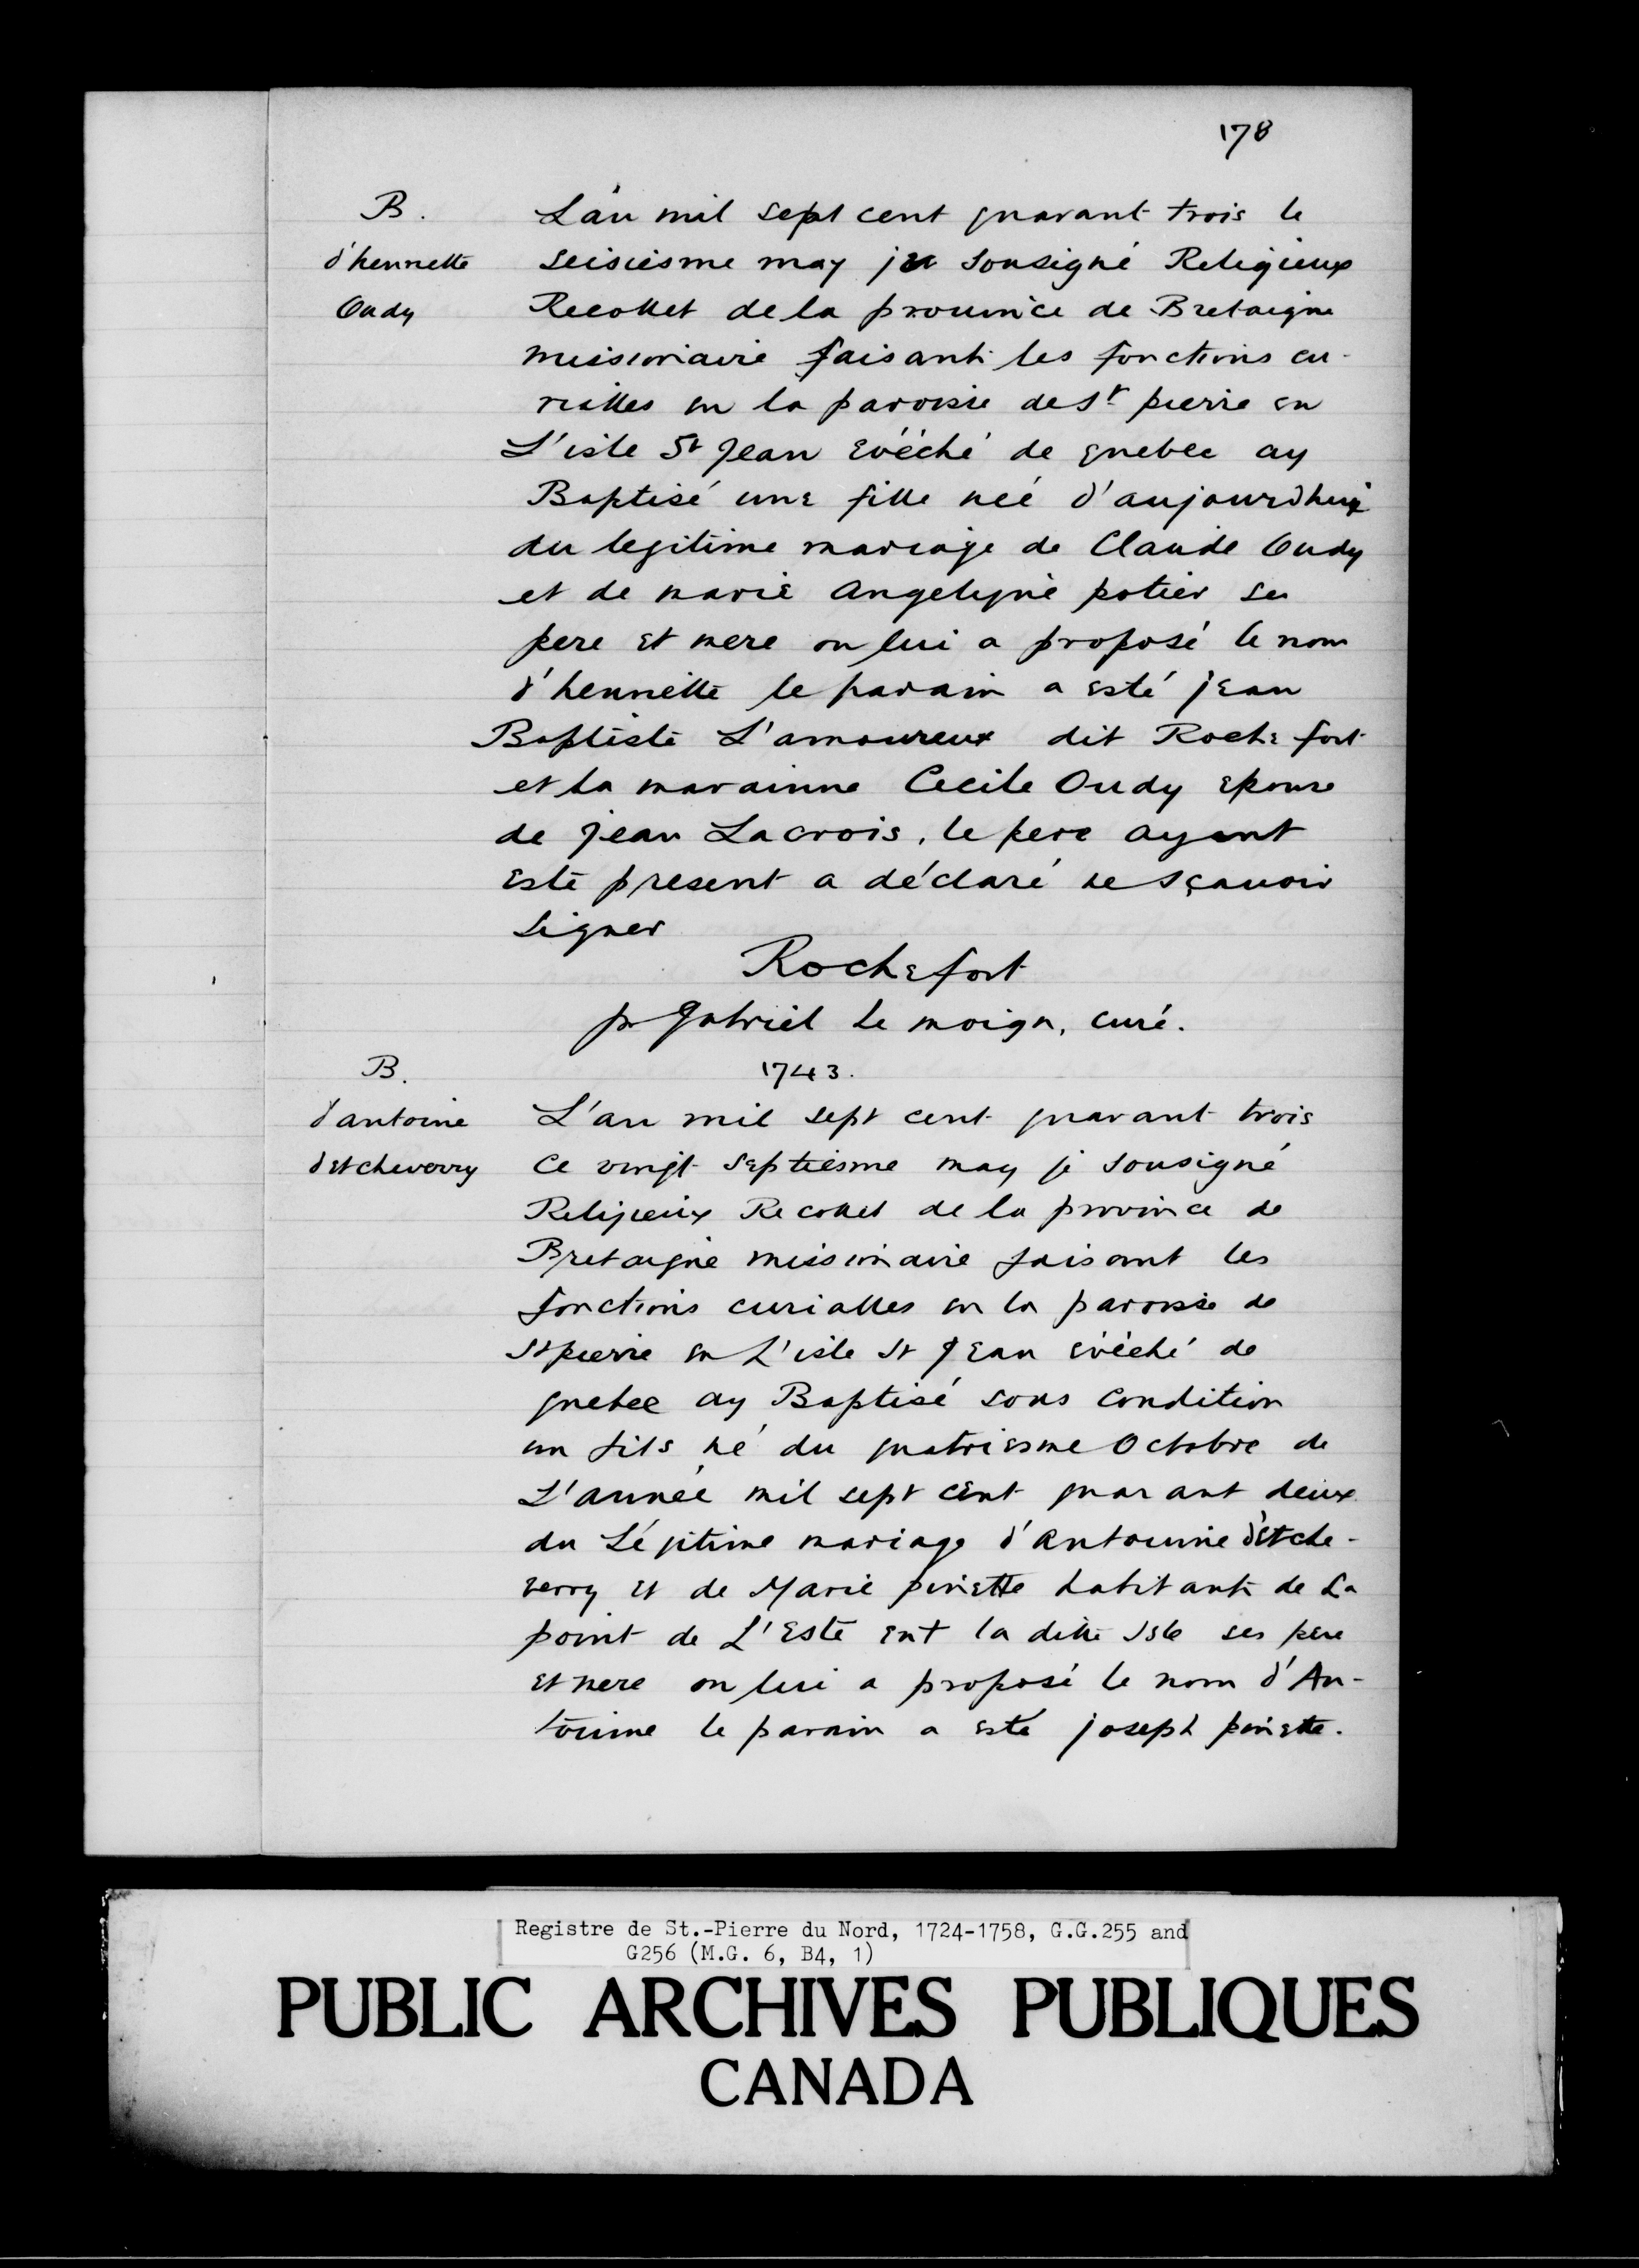 178
B.
d'henriette
Oudy
L'an mil sept cent quarant trois le
seisiesme may je sousigné Religieux
Recollet de la prouince de Bretaigne
missionaire faisant les fonctions cu-
rialles en la paroisse de St pierre en
L'isle St Jean Evêché de quebec ay
Baptisé une fille neé d'aujourdhuy
du legitime mariage de Claude Oudy
et de marie Angelique potier ses
pere et mere on lui a proposé le nom
d'henriette le parain a esté jean
Baptiste L'amoureux dit Rochefort
et la marainne Cecile Oudy epouse
de jean Lacrois, le pere ayant
esté present a déclaré ne sçauoir
signer
Rochefort
fr Gabriel le moign, curé.
1743.
B.
d'antoine
d'etcheverry
L'an mil sept cent quarant trois
Ce vingt septiesme may je sousigné
Religieux Recollet de la province de
Bretaigne missionaire faisant les
fonctions curialles en la paroisse de
St pierre en L'isle St Jean évêché de
quebec ay Baptisé sous condition
un fils né du quatriesme Octobre de
L'année mil sept cent quarant deux
du Légitime mariage d'Antoinne d'Etche-
verry et de Marie piriette habitants de La
point de L'Este ent la ditte isle ses pere
et mere on lui a proposé le nom d'An-
toinne le parain a esté joseph piriette.
Registre de St.-Pierre du Nord, 1724-1758, G.G.255 and
G256 (M.G. 6, B4, 1)
PUBLIC ARCHIVES PUBLIQUES
CANADA